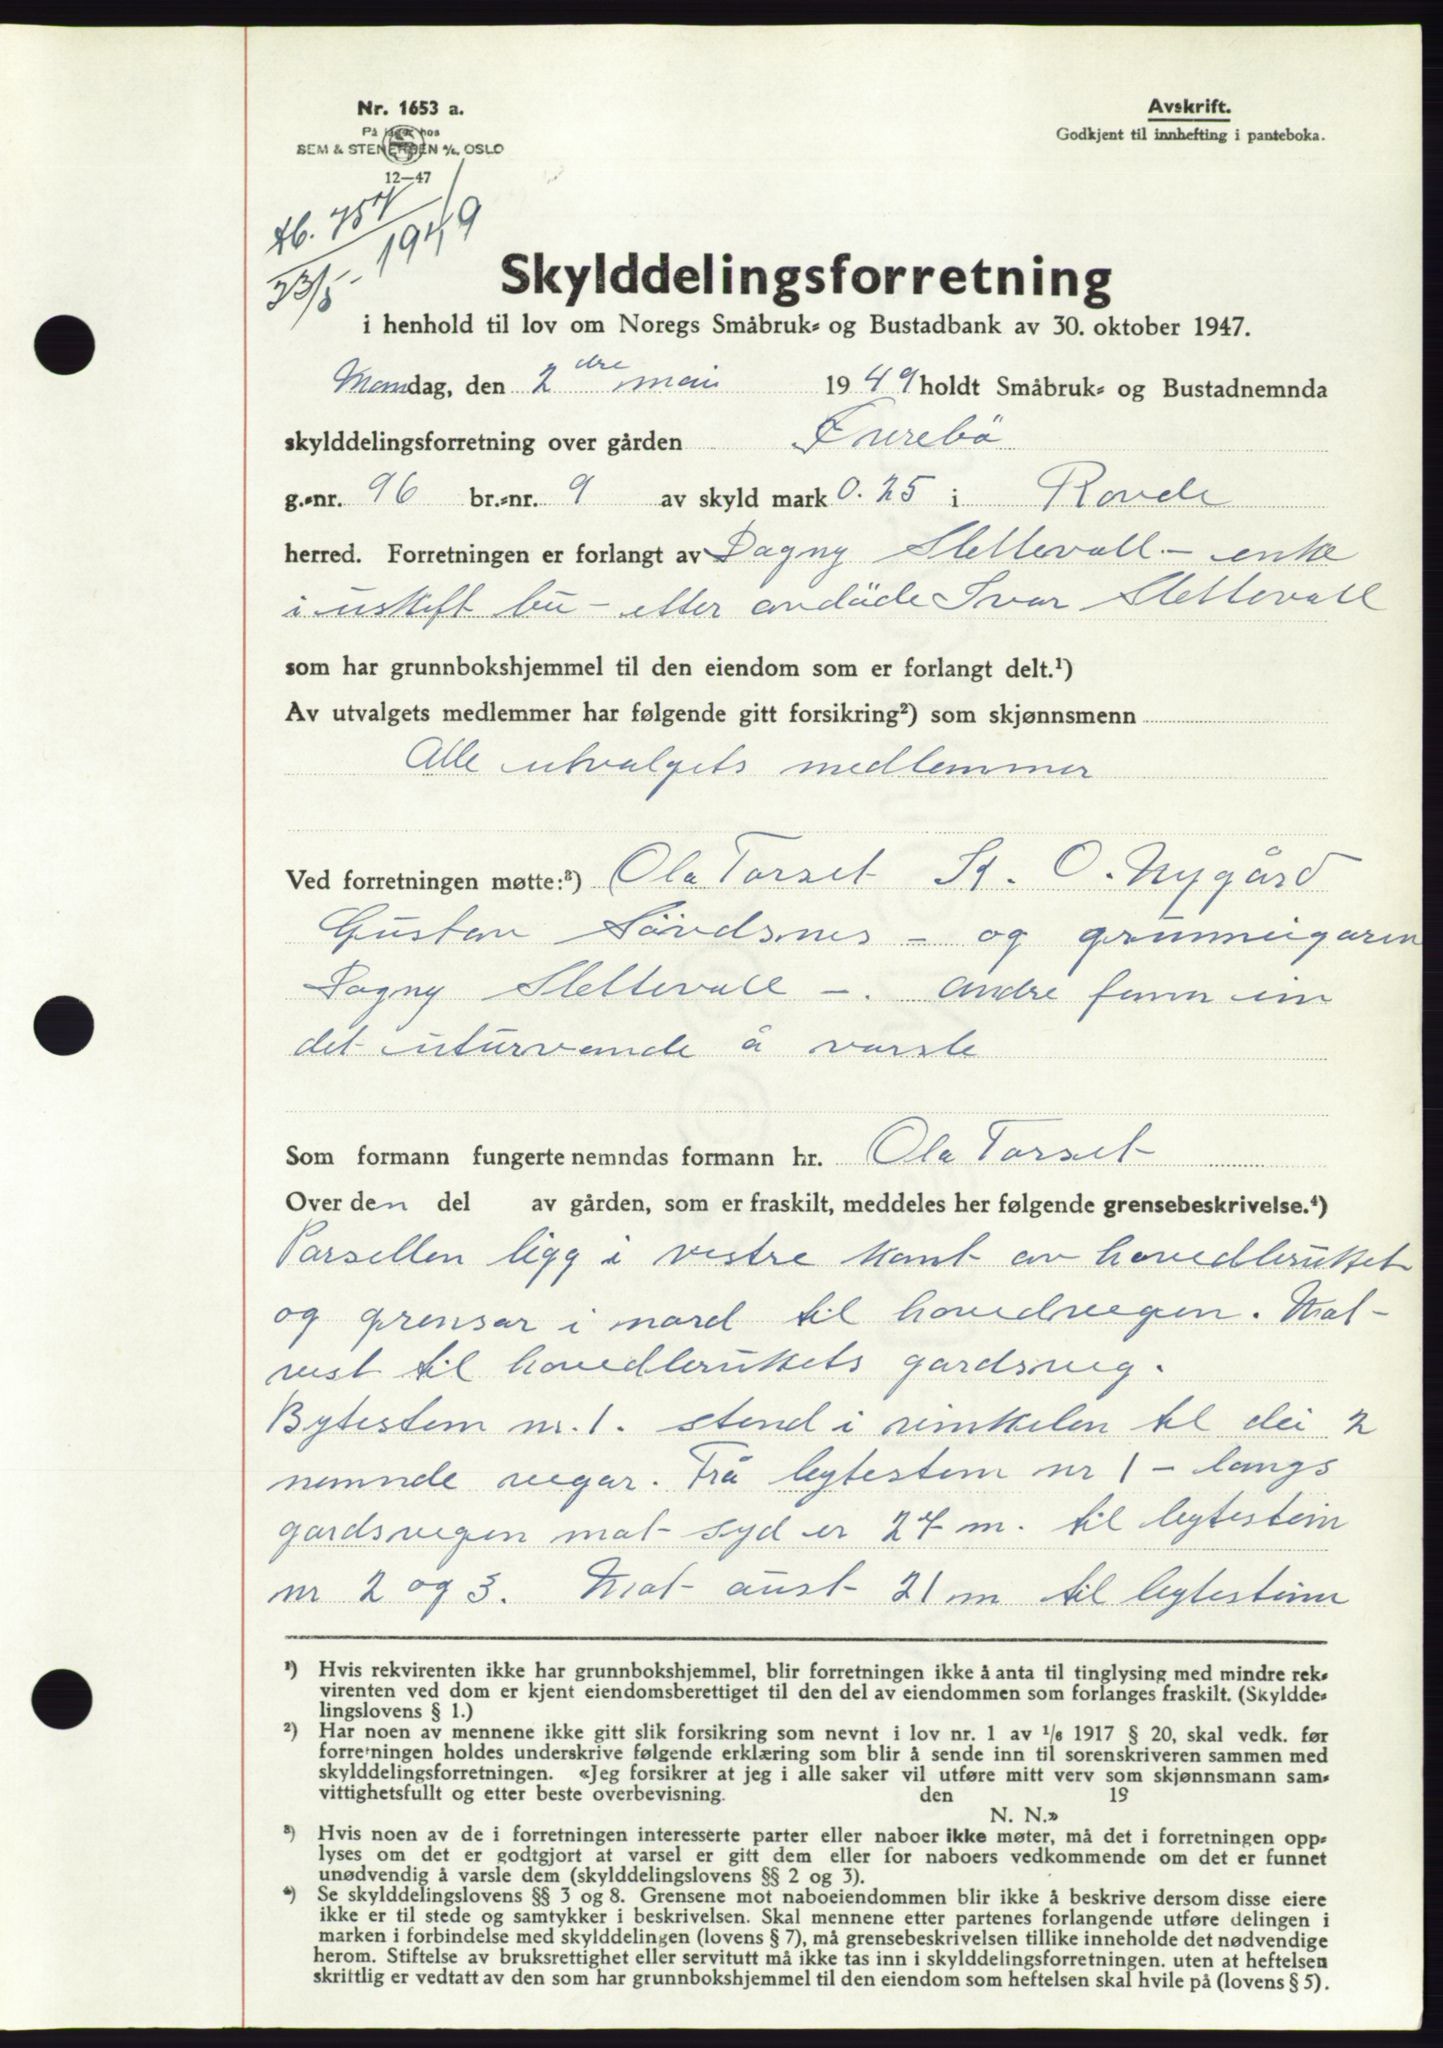 Nr. 1653 a.
På lager hos
SEM & STENERSEN A/S, OSLO
12—47
Avskrift.
Godkjent til innhefting i panteboka.
db. 757/1949
23/5
Skylddelingsforretning
i henhold til lov om Noregs Småbruk- og Bustadbank av 30. oktober 1947.
Mandag, den 2dre mai 1949 holdt Småbruk- og Bustadnemnda
skylddelingsforretning over gården Furebö
g.-nr. 96 br.-nr. 9 av skyld mark 0.25 i Rovde
herred. Forretningen er forlangt av Dagny Slettevoll – enke
i uskift bu – etter avdöde Ivar Slettevoll
som har grunnbokshjemmel til den eiendom som er forlangt delt.¹)
Av utvalgets medlemmer har følgende gitt forsikring²) som skjønnsmenn
Alle utvalgets medlemmer
Ved forretningen møtte:³) Ola Torset K. O. Nygård
Gustav Sövdsnes – og grunneigaren
Dagny Slettevoll –. Andre fann ein
det uturvande å varsle
Som formann fungerte nemndas formann hr. Ola Torset
Over den del av gården, som er fraskilt, meddeles her følgende grensebeskrivelse.⁴)
Parsellen ligg i vestre kant av hovedbruket
og grensar i nord til hovedvegen. Mot
vest til hovedbrukets gardsveg.
Bytestein nr. 1. stend i vinkelen til dei 2
nemnde vegar. Frå bytestein nr 1 – langs
gardsvegen mot syd er 27 m. til bytestein
nr 2 og 3. Mot aust 21 m til bytestein
¹) Hvis rekvirenten ikke har grunnbokshjemmel, blir forretningen ikke å anta til tinglysing med mindre rek-
virenten ved dom er kjent eiendomsberettiget til den del av eiendommen som forlanges fraskilt. (Skyldde-
lingslovens § 1.)
²) Har noen av mennene ikke gitt slik forsikring som nevnt i lov nr. 1 av 1/6 1917 § 20, skal vedk. før
forretningen holdes underskrive følgende erklæring som blir å sende inn til sorenskriveren sammen med
skylddelingsforretningen. «Jeg forsikrer at jeg i alle saker vil utføre mitt verv som skjønnsmann sam-
vittighetsfullt og etter beste overbevisning. den 19
N. N.»
³) Hvis noen av de i forretningen interesserte parter eller naboer ikke møter, må det i forretningen opp-
lyses om det er godtgjort at varsel er gitt dem eller for naboers vedkommende om det er funnet
unødvendig å varsle dem (skylddelingslovens §§ 2 og 3).
⁴) Se skylddelingslovens §§ 3 og 8. Grensene mot naboeiendommen blir ikke å beskrive dersom disse eiere
ikke er til stede og samtykker i beskrivelsen. Skal mennene etter partenes forlangende utføre delingen i
marken i forbindelse med skylddelingen (lovens § 7), må grensebeskrivelsen tillike inneholde det nødvendige
herom. Stiftelse av bruksrettighet eller servitutt må ikke tas inn i skylddelingsforretningen. uten at heftelsen
skriftlig er vedtatt av den som har grunnbokshjemmel til den eiendom som heftelsen skal hvile på (lovens § 5).